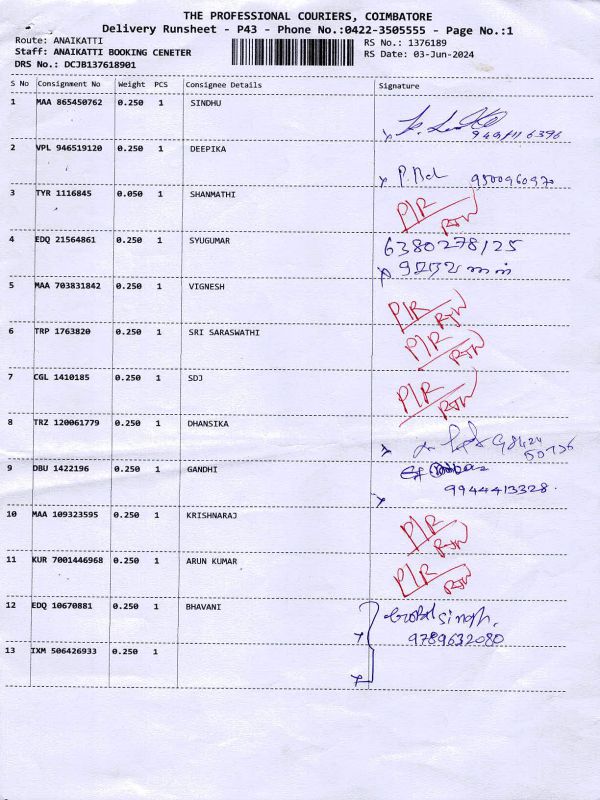 THE PROFESSIONAL COURIERS, COIMBATORE
Delivery Runsheet - P43 - Phone No.:0422-3505555 - Page No.:1
Route: ANAIKATTI RS No.: 1376189
Staff: ANAIKATTI BOOKING CENETER RS Date: 03-Jun-2024
DRS No.: DCJB137618901
S No Consignment No Weight PCS Consignee Details Signature
1 MAA 865450762 0.250 1 SINDHU
2 VPL 946519120 0.250 1 DEEPIKA
3 TYR 1116845 0.050 1 SHANMATHI P/R RTN
4 EDQ 21564861 0.250 1 SYUGUMAR 6380278125
5 MAA 703831842 0.250 1 VIGNESH P/R RTN
6 TRP 1763820 0.250 1 SRI SARASWATHI P/R RTN
7 CGL 1410185 0.250 1 SDJ P/R RTN
8 TRZ 120061779 0.250 1 DHANSIKA 98424
50736
9 DBU 1422196 0.250 1 GANDHI
9944413328.
10 MAA 109323595 0.250 1 KRISHNARAJ P/R RTN
11 KUR 7001446968 0.250 1 ARUN KUMAR P/R RTN
12 EDQ 10670881 0.250 1 BHAVANI singh,
9789632080
13 IXM 506426933 0.250 1